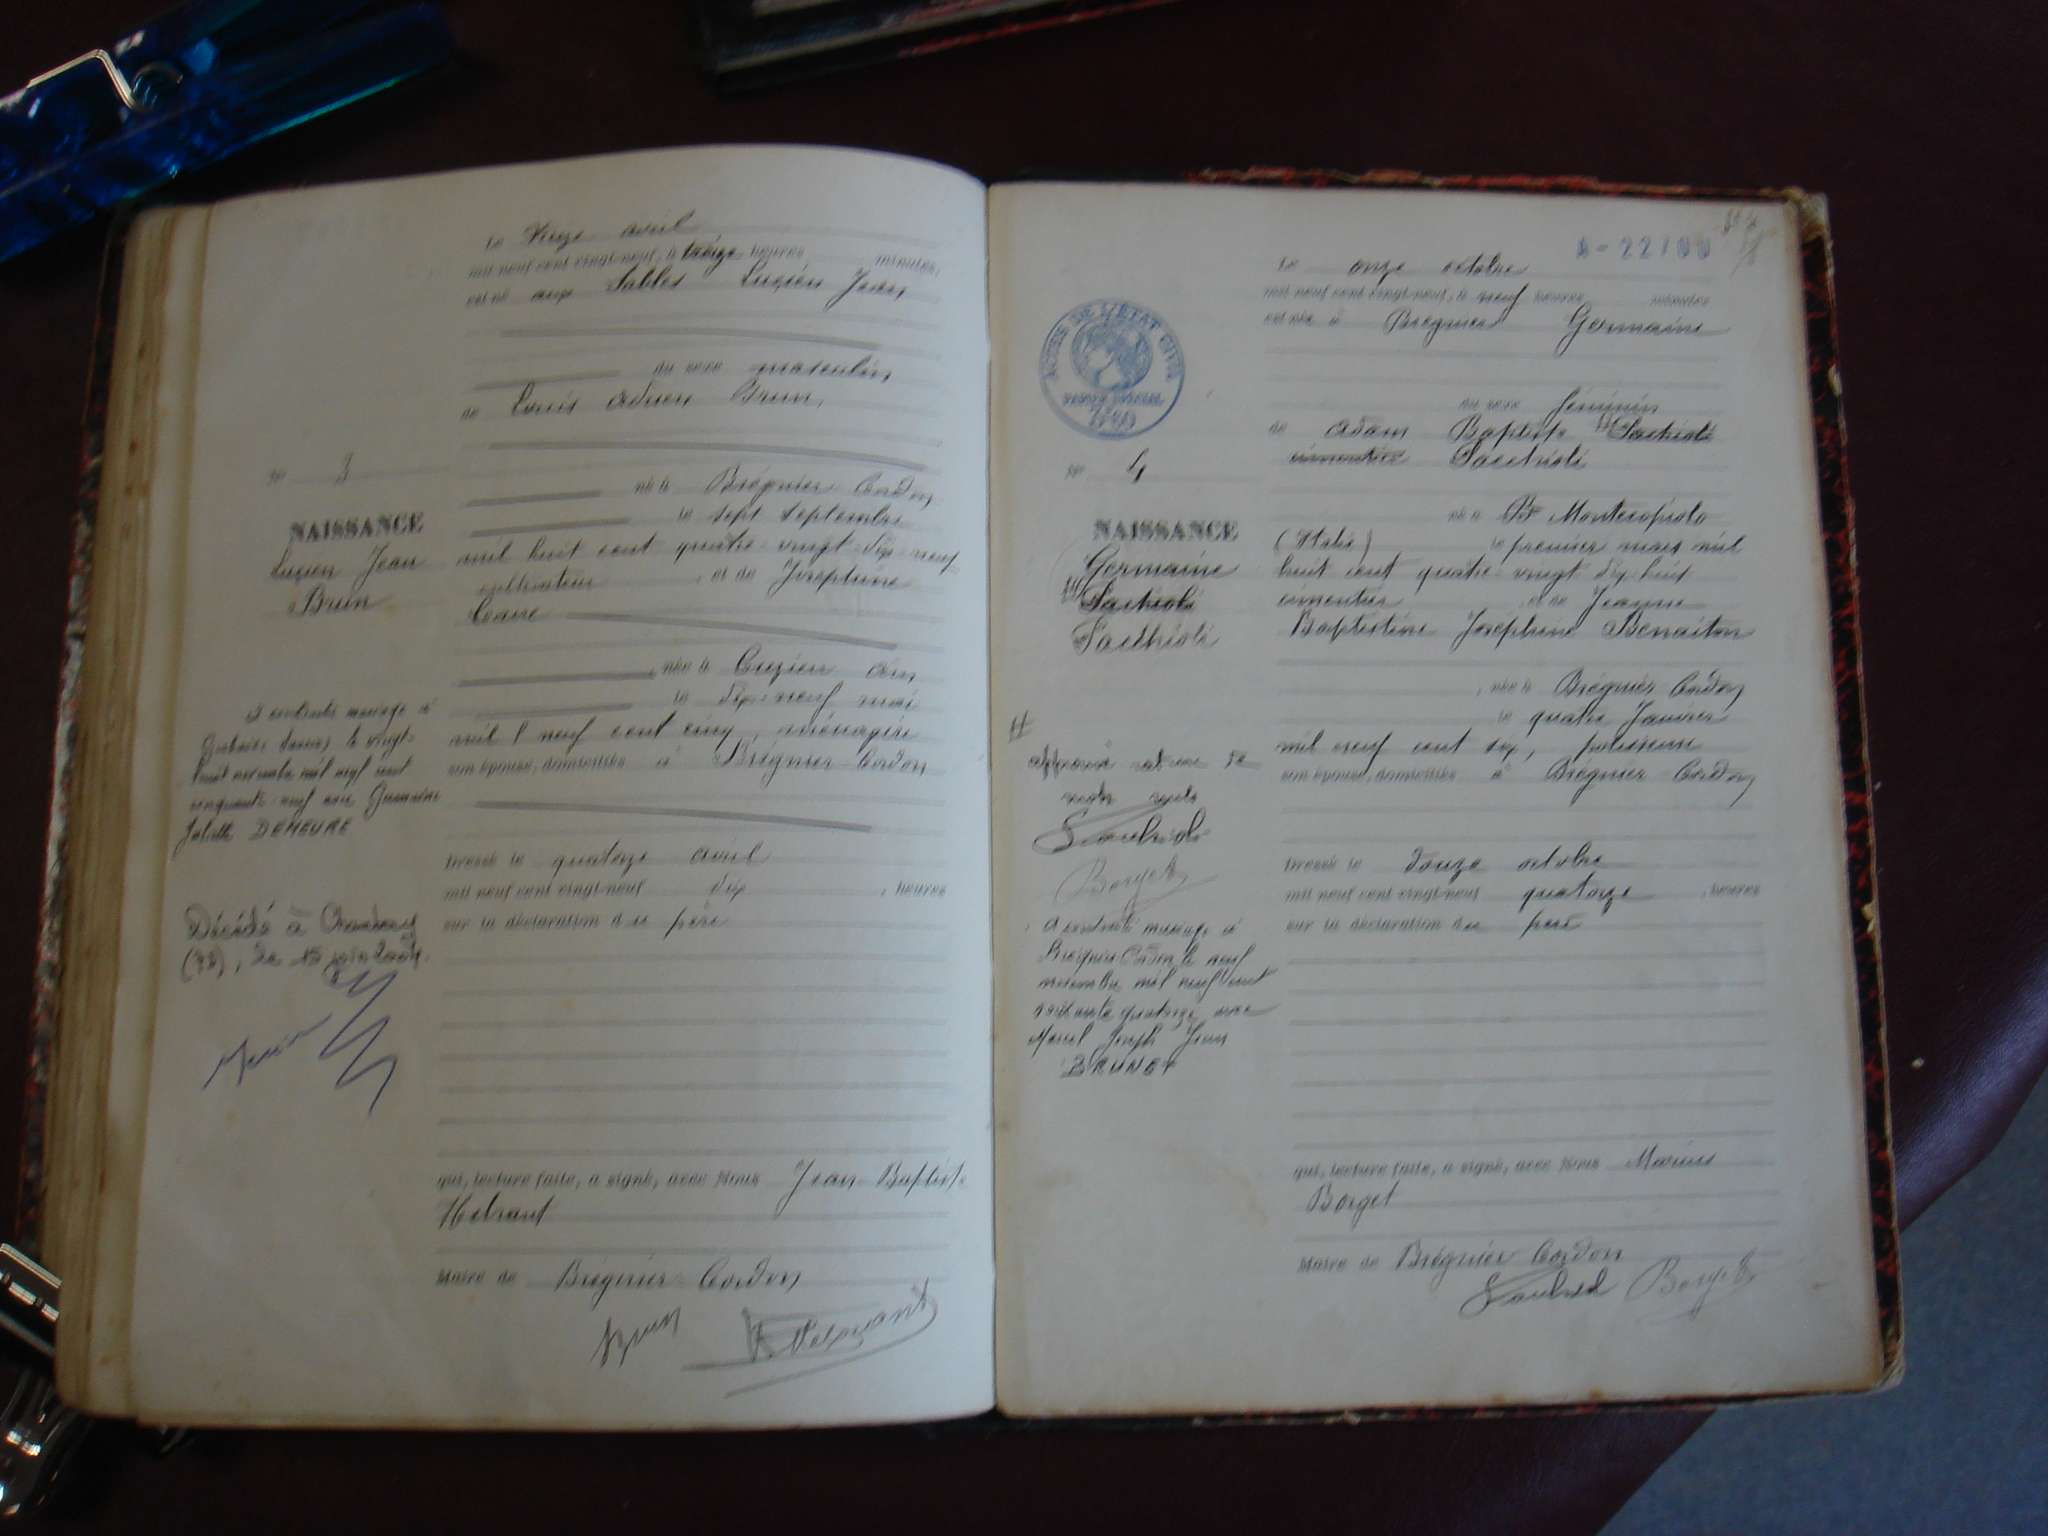 Le treize avril
mil neuf cent vingt-neuf, à treize heures minutes,
est né aux Sables Lucien Jean
du sexe masculin
de Louis Adrien Brun,
né à Brégnier-Cordon
N° 3
le sept septembre
NAISSANCE
Lucien Jean
Brun
mil huit cent quatre-vingt-dix-neuf
cultivateur, et de Joséphine
née à Cuzieu Ain
le dix-neuf mai
mil neuf cent cinq, ménagère
son épouse, domiciliés à Brégnier-Cordon
A contracté mariage à
le vingt-
huit mil neuf cent
cinquante-neuf avec Germaine
Juliette DEMEURE
Dressé le quatorze avril
mil neuf cent vingt-neuf dix, heures
sur la déclaration du père
Décédé à
(73), le 15 2004.
qui, lecture faite, a signé, avec Nous Jean-Baptiste
Maire de Brégnier-Cordon
Brun
A-22700
Le onze octobre
mil neuf cent vingt-neuf, à neuf heures minutes
est née à Brégnier Germaine
ACTES DE L'ETAT CIVIL
du sexe féminin
de Adam Baptiste Sachioli
cimentier Sacchioli
N° 4
né à Br Montecopiolo
NAISSANCE
Germaine
Sachioli
Sacchioli
(Italie) le premier mars mil
huit cent quatre-vingt dix-huit
cimentier, et de Jeanne
Baptistine Joséphine Benaiton
née à Brégnier Cordon
le quatre Janvier
mil neuf cent six,
son épouse, domiciliés à Brégnier-Cordon
approuvé rature de
mots nuls
Borget
Dressé le douze octobre
mil neuf cent vingt-neuf quatorze, heures
sur la déclaration du père
A contracté mariage à
Brégnier Cordon le neuf
novembre mil neuf cent
soixante quatorze avec
Marcel Joseph Jean
BRUNET
qui, lecture faite, a signé, avec Nous Marius
Borget
Maire de Brégnier Cordon
Borget